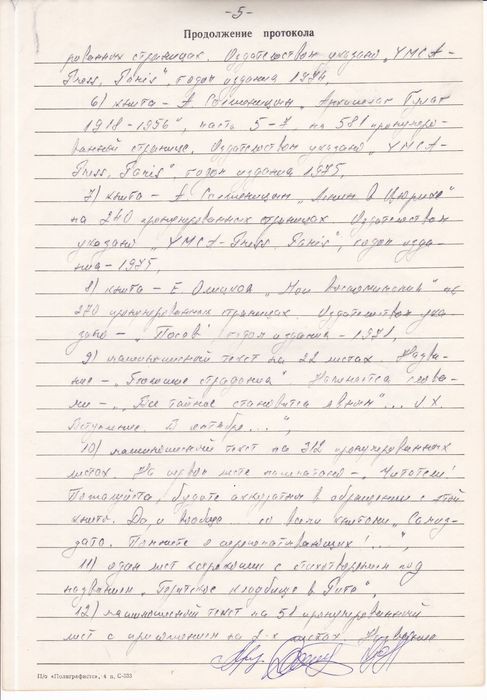 -5-
Продолжение протокола
рованных страницах. Издательством указано „YMCA-
Press, Paris", годом издания 1974
6) книга – А Солженицын „Архипелаг Гулаг
1918-1956", часть 5-7, на 581 пронумеро-
ванной странице. Издательством указано „YMCA-
Press, Paris", годом издания 1975,
7) книга – А Солженицын „Ленин в Цюрихе"
на 240 пронумерованных страницах Издательством
указано „YMCA-Press. Paris", годом изда-
ния – 1975,
8) книга – Е. „Мои воспоминания" на
270 пронумерованных страницах. Издательством ука-
зано – „Посев" годом издания – 1971,
9) машинописный текст на 22 листах. Назва-
ние – страдания" Начинается слова-
ми – „Все тайное становится явным"...
Вступление. В октябре...",
10) машинописный текст на 312 пронумерованных
листах На первом листе напечатано – „Читатель!
Пожалуйста, будьте аккуратны в обращении с этой
книгой. Да и вообще со всеми книгами „Самиз-
дата. Помните о перепечатывающих!...",
11) один лист ксерокопии с стихотворением под
названием „ кладбище в ",
12) машинописный текст на 51 пронумерованный
лист с приложением на листах Название
П/о «Полиграфист», 4 п, С-333